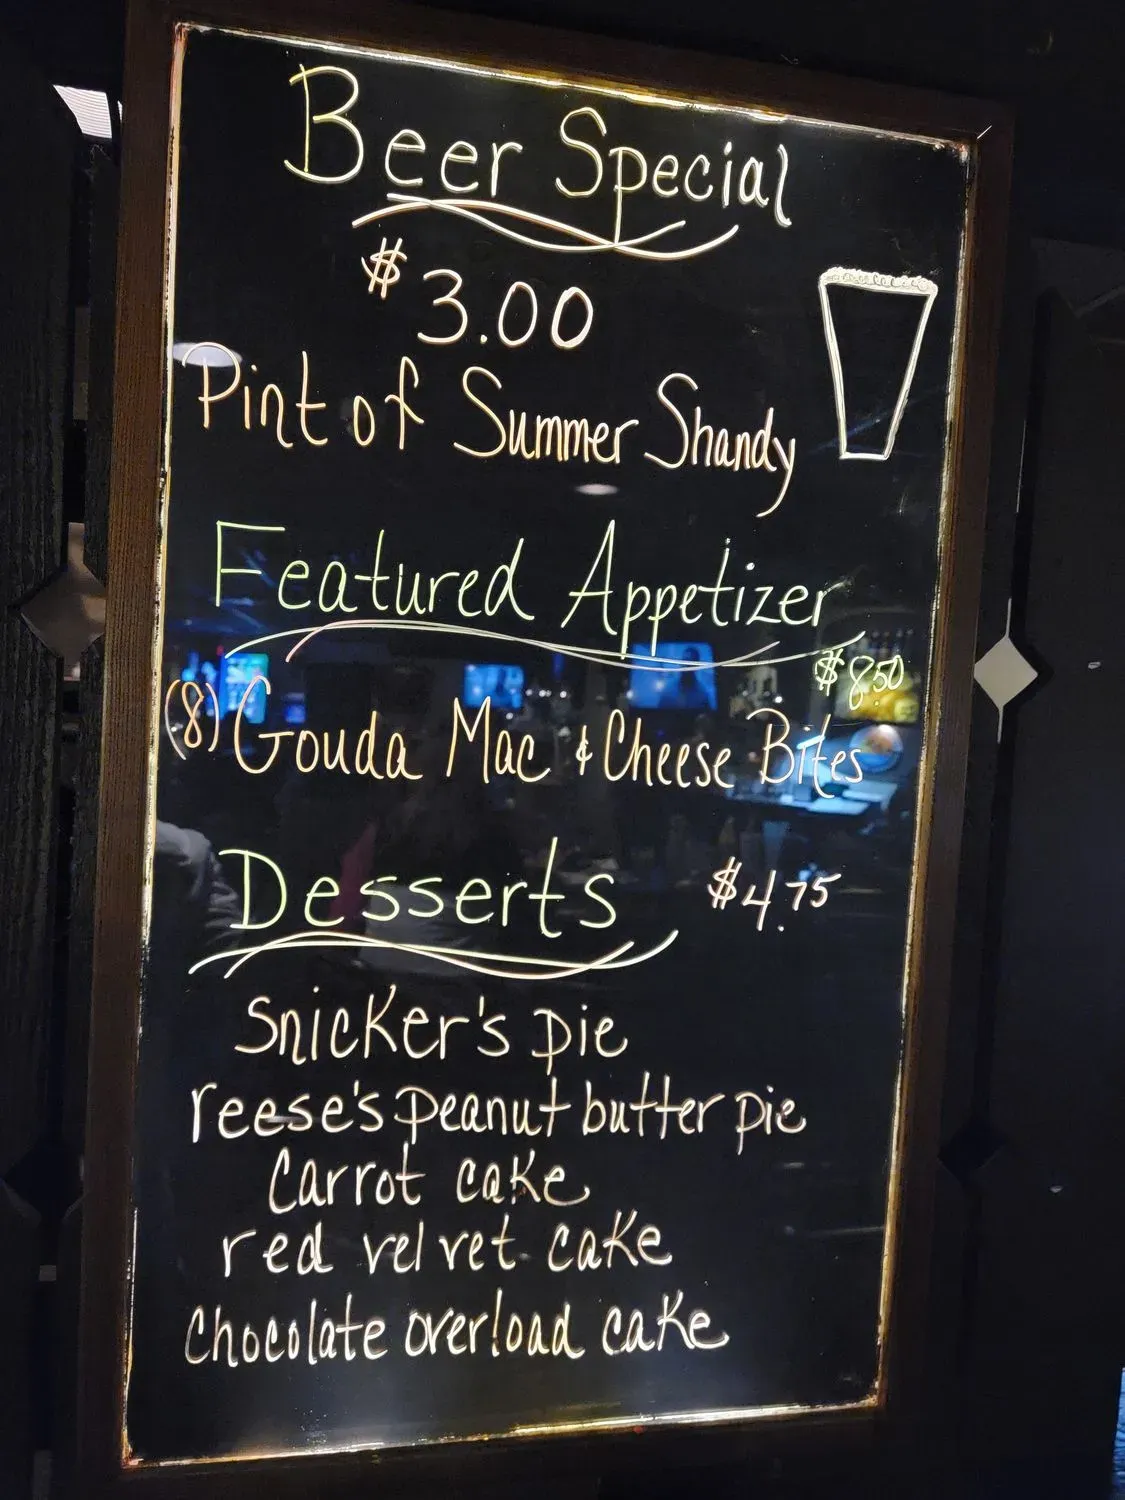 Beer Special
$3.00
Pint of Summer Shandy
Featured Appetizer
$8.50
(8) Gouda Mac & Cheese Bites
Desserts $4.75
Snicker's pie
reese's peanut butter pie
Carrot cake
red velvet cake
Chocolate overload cake